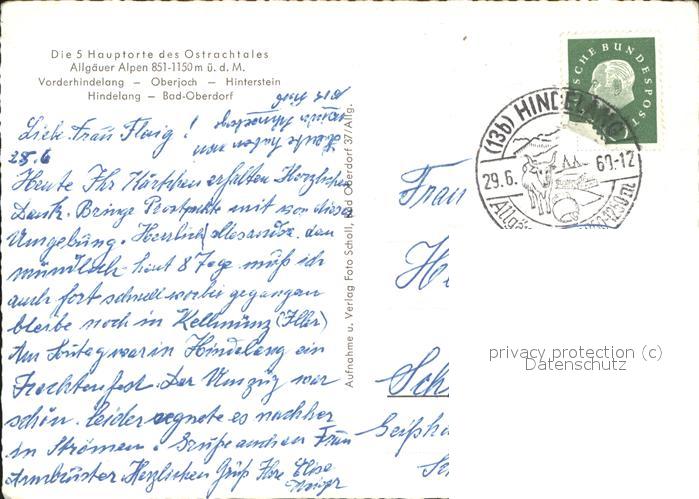 Die 5 Hauptorte des Ostrachtales
Allgäuer Alpen 851-1150 m ü. d. M.
Vorderhindelang – Oberjoch – Hinterstein
Hindelang – Bad-Oberdorf
Liebe Frau
!
28.6
Heute Ihr Kärtchen erhalten Herzlichen
Dank. Bringe Prospekte mit von dieser
Umgebung. Herzlich
mündlich heut 8 Tage muß ich
auch fort schnell vorbei gegangen
bleibe noch in Kellmünz (Iller)
Am Sontag war in Hindelang ein
Trachtenfest. Der Umzug war
schön. leider regnete es nachher
in Strömen. Grüße auch an Frau
Armbruster Herzlichen Gruß Ihre Elise
Aufnahme u. Verlag Foto Scholl, Bad Oberdorf 37/Allg.
DEUTSCHE BUNDESPOST
(13b) HINDELANG
29.6. 60-12
Frau
H
Sch
privacy protection (c)
Datenschutz